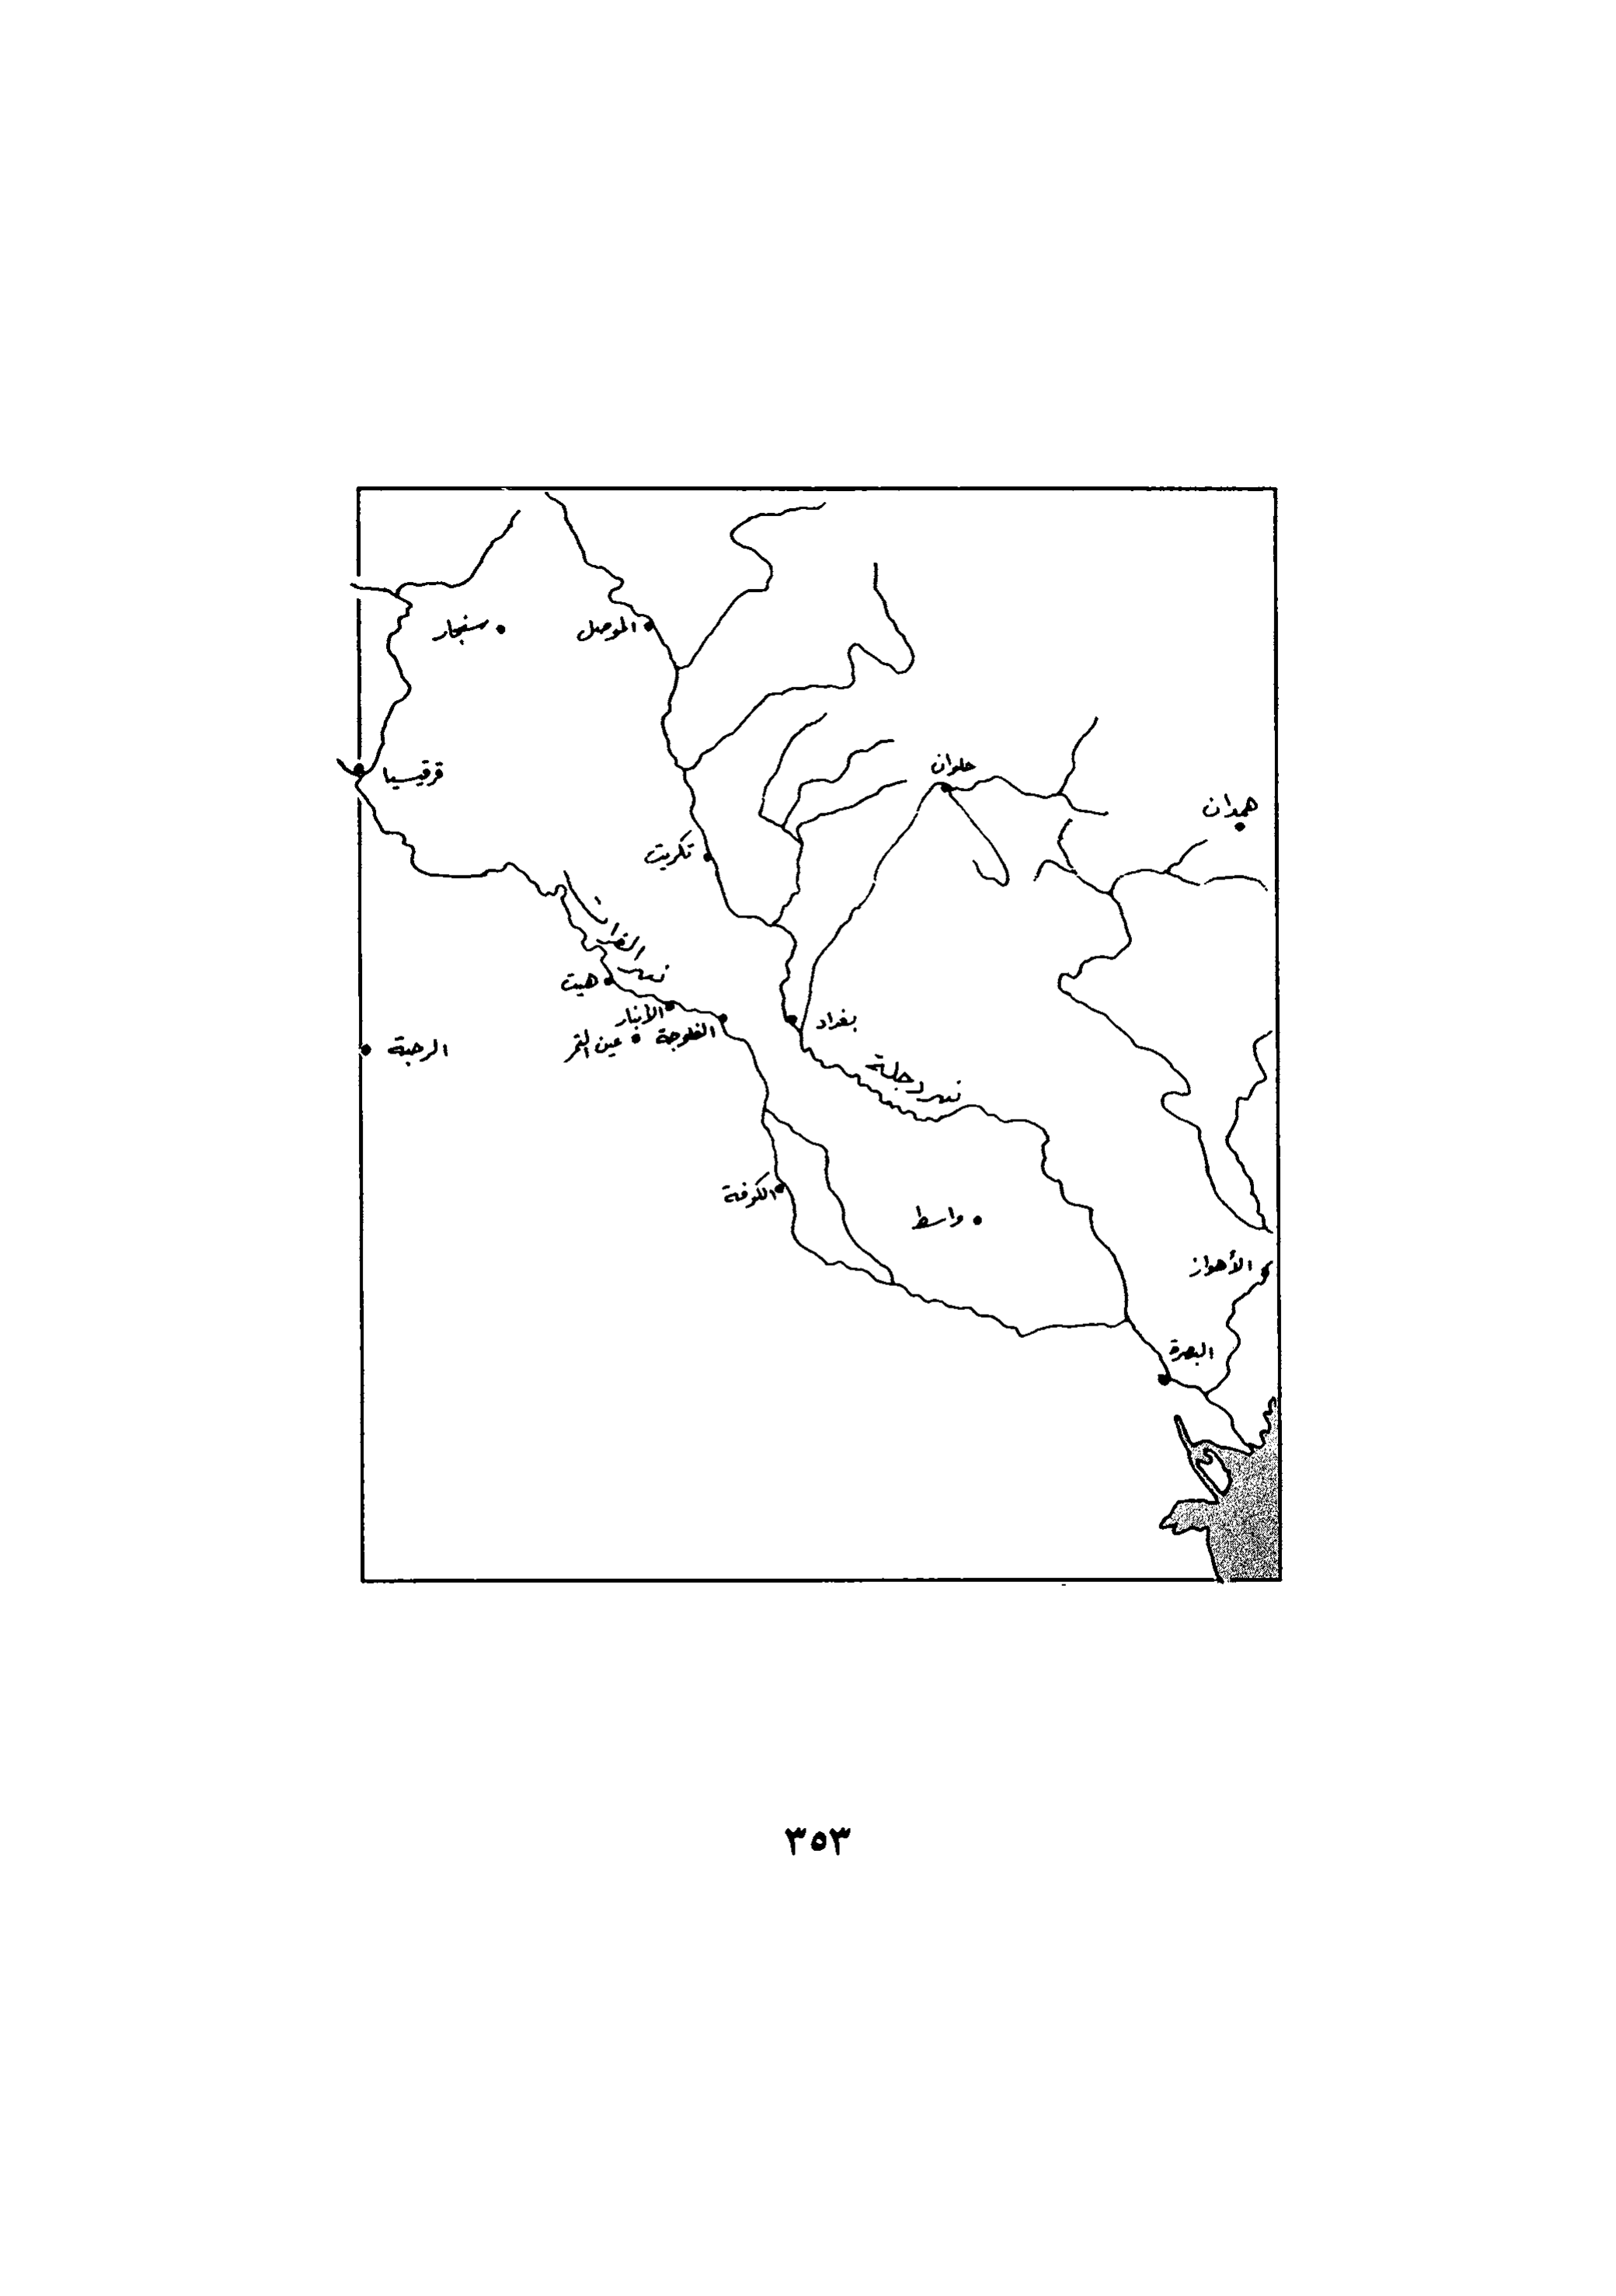 سنجار
الموصل
قرقيسيا
حلوان
همدان
تكريت
نهر الفرات
هيت
الأنبار
الفلوجة
عين التمر
الرحبة
بغداد
نهر دجلة
الكوفة
واسط
الأهواز
البصرة
٣٥٣